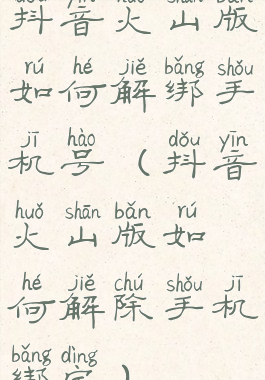 dǒu yīn huǒ shān bǎn
抖音火山版
rú hé jiě bǎng shǒu
如何解绑手
jī hào dǒu yīn
机号(抖音
huǒ shān bǎn rú
火山版如
hé jiě chú shǒu jī
何解除手机
bǎng dìng
绑定)